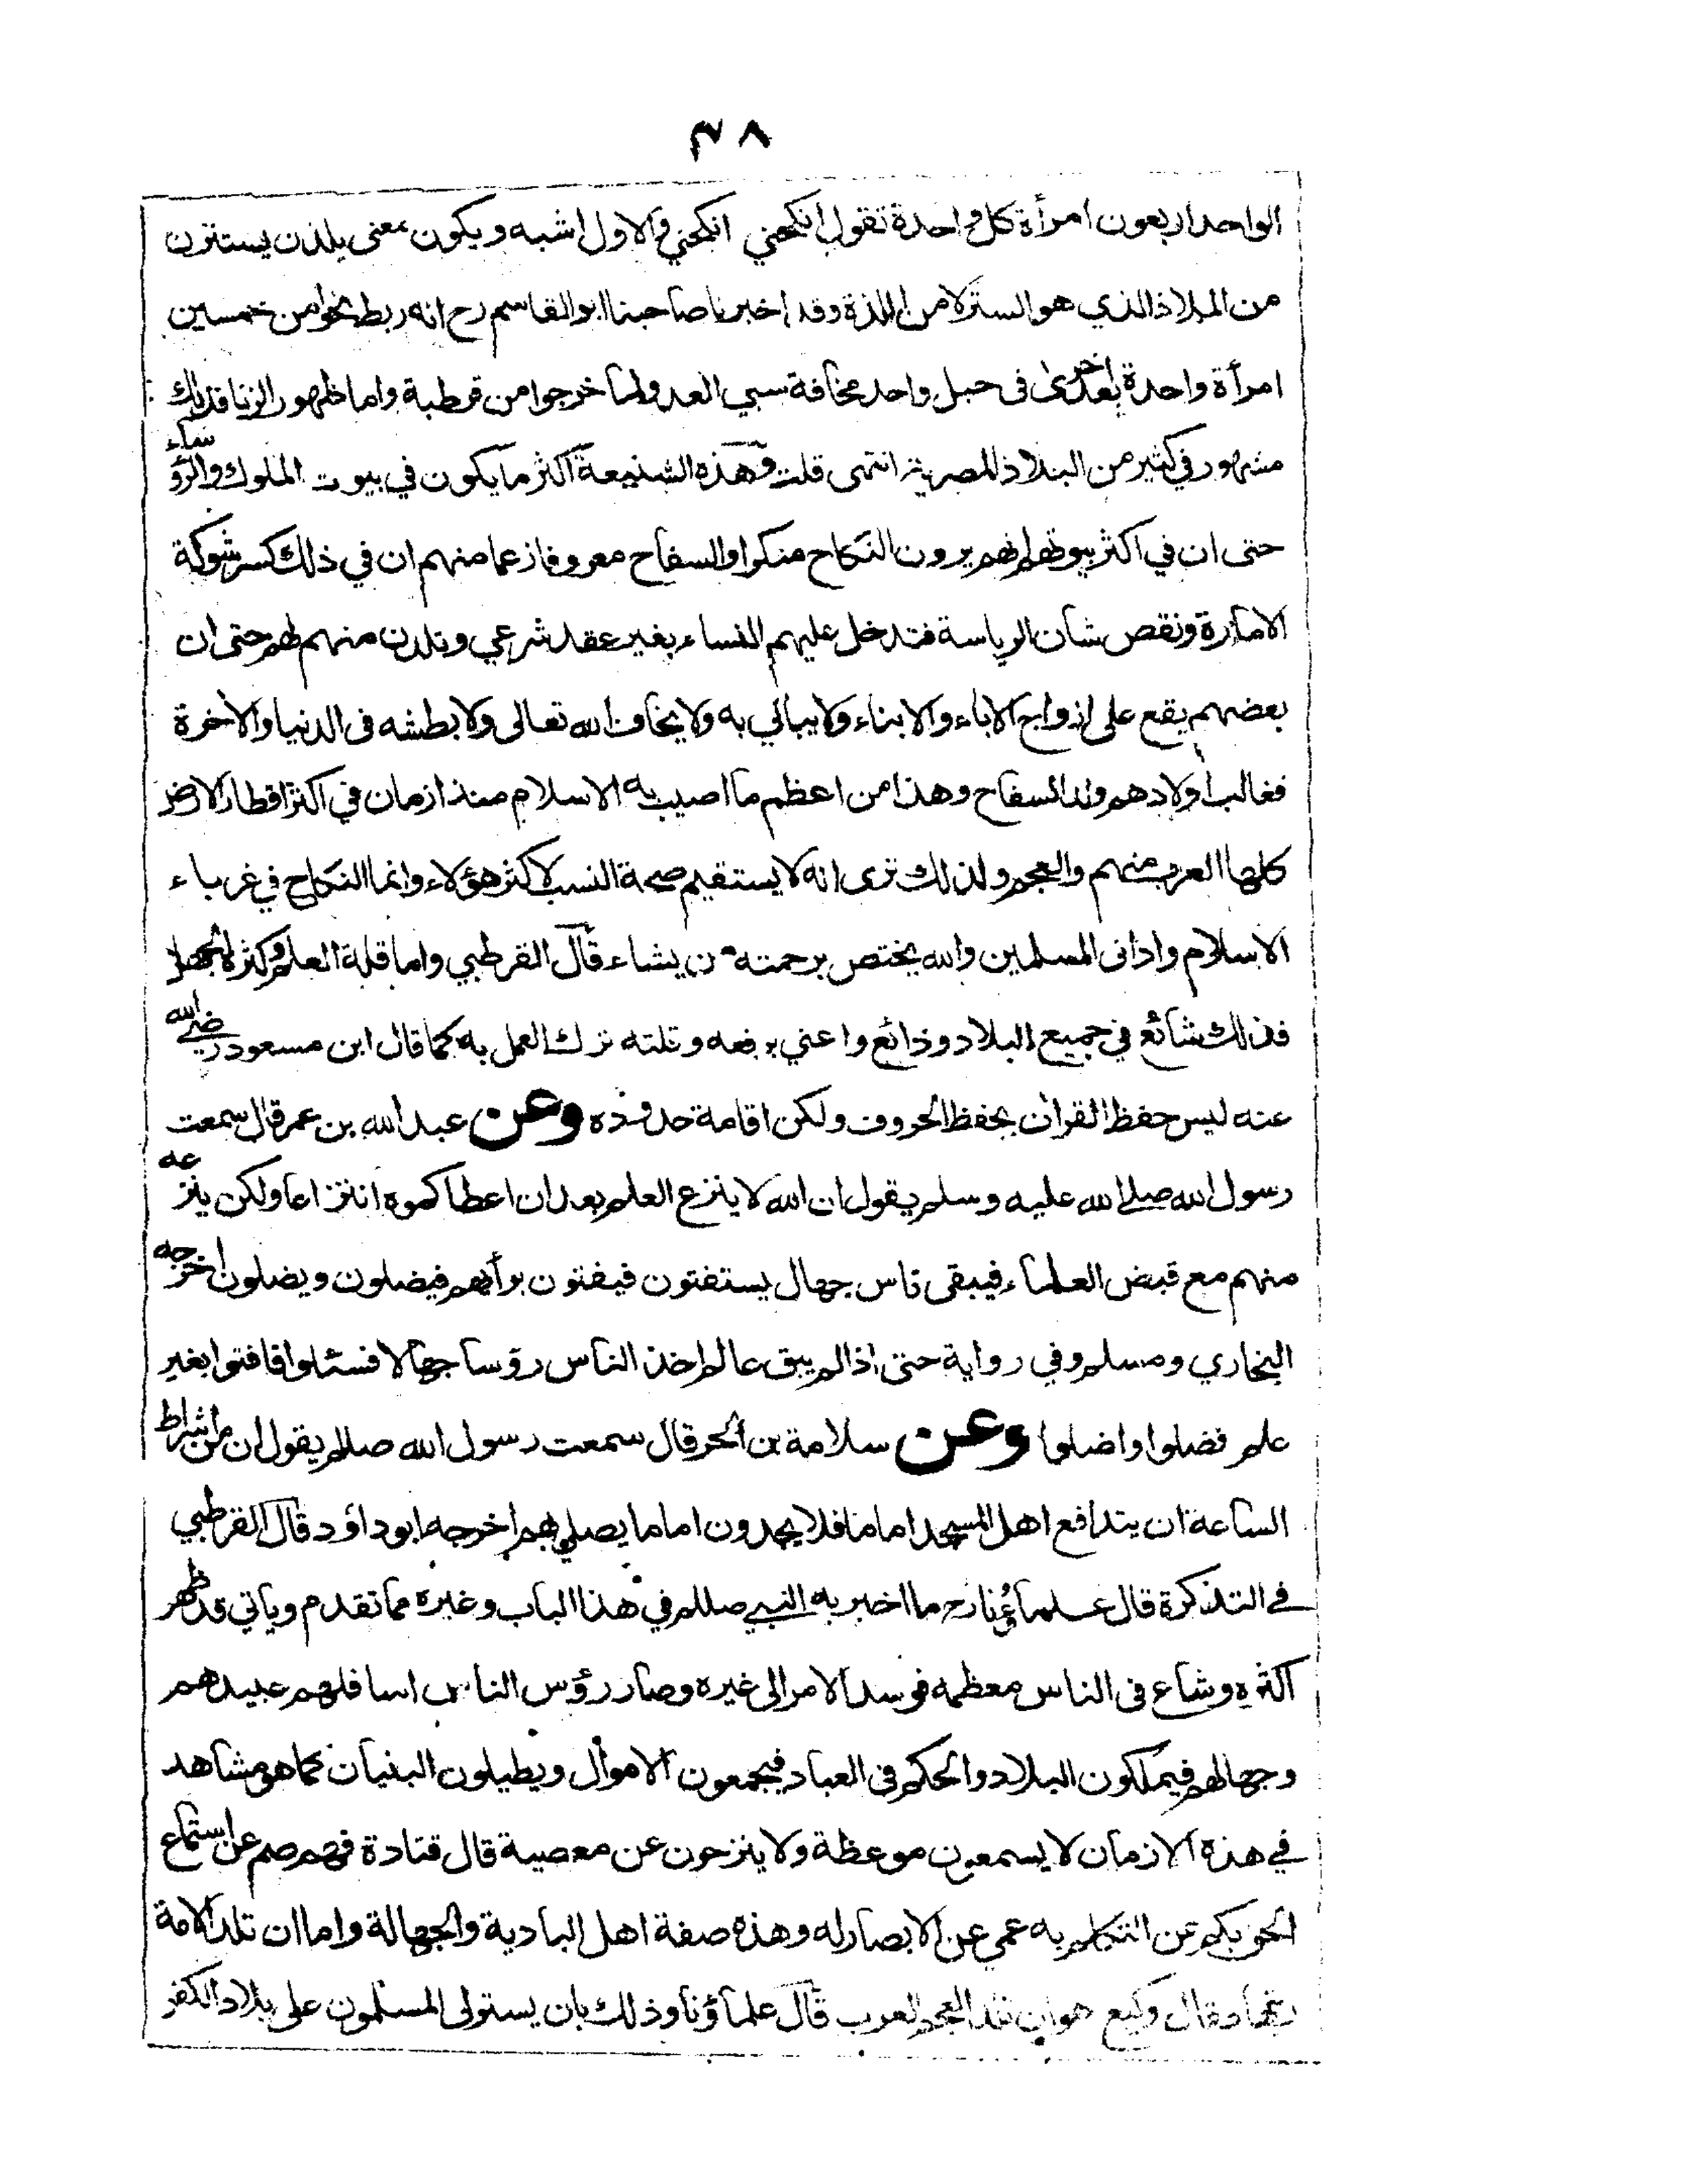 ٣٨
الواحد اربعون امرأة كل واحدة تقول انكحني انكحني والاول اشبه ويكون بمعنى يلذن يستترن
من الملاذ الذي هو الستر لا من اللذة وقد اخبرنا صاحبنا ابو القاسم رح انه ربط نحوا من خمسين
امرأة واحدة بعد اخرى فى حبل واحد مخافة سبي العدو ولما خرجوا من قرطبة واما ظهور الزنا فذلك
مشهور في كثير من البلاد المصرية انتهى قلت وهذه الشنيعة اكثر ما يكون في بيوت الملوك والرؤساء
حتى ان في اكثر بيوتهم انهم يرون النكاح منكرا والسفاح معروفا زعما منهم ان في ذلك كسر شوكة
الامارة ونقص شان الرياسة فتدخل عليهم النساء بغير عقد شرعي وتلدن منهم لهم حتى ان
بعضهم يقع على ازواج الاباء والابناء ولا يبالي به ولا يخاف الله تعالى ولا بطشه فى الدنيا والاخرة
فغالب اولادهم ولد السفاح وهذا من اعظم ما اصيب به الاسلام منذ ازمان في اكثر اقطار الارض
كلها العرب منهم والعجم ولذلك ترى انه لا يستقيم صحة النسب لاكثر هؤلاء وانما النكاح في غرباء
الاسلام وادانى المسلمين والله يختص برحمته من يشاء قال القرطبي واما قلة العلم وكثرة الجهل
فذلك شائع في جميع البلاد وذائع واعني برفعه وقلته ترك العمل به كما قال ابن مسعود رضي الله
عنه ليس حفظ القران بحفظ الحروف ولكن اقامة حدوده وعن عبد الله بن عمر قال سمعت
رسول الله صلى الله عليه وسلم يقول ان الله لا ينزع العلم بعد ان اعطاكموه انتزاعا ولكن ينزعه
منهم مع قبض العلماء فيبقى ناس جهال يستفتون فيفتون برأيهم فيضلون ويضلون اخرجه
البخاري ومسلم وفي رواية حتى اذا لم يبق عالم اخذ الناس رؤسا جهالا فسئلوا فافتوا بغير
علم فضلوا واضلوا وعن سلامة بن الحر قال سمعت رسول الله صللم يقول ان من اشراط
الساعة ان يتدافع اهل المسجد اماما فلا يجدون اماما يصلي بهم اخرجه ابو داؤد قال القرطبي
في التذكرة قال علماؤنا رح ما اخبر به النبي صللم في هذا الباب وغيره مما تقدم وياتي قد ظهر
اكثره وشاع فى الناس معظمه فوسد الامر الى غيره وصار رؤس الناس اسافلهم عبيدهم
وجهالهم فيملكون البلاد والحكم فى العباد فيجمعون الاموال ويطيلون البنيان كما هو مشاهد
في هذه الازمان لا يسمعون موعظة ولا ينزجون عن معصية قال قتادة فهم صم عن استماع
الحق بكم عن التكلم به عمى عن الابصار له وهذه صفة اهل البادية والجهالة واما ان تلد الامة
ربتها فقال وكيع هو ان تلد العجم العرب قال علماؤنا وذلك بان يستولى المسلمون على بلاد الكفر